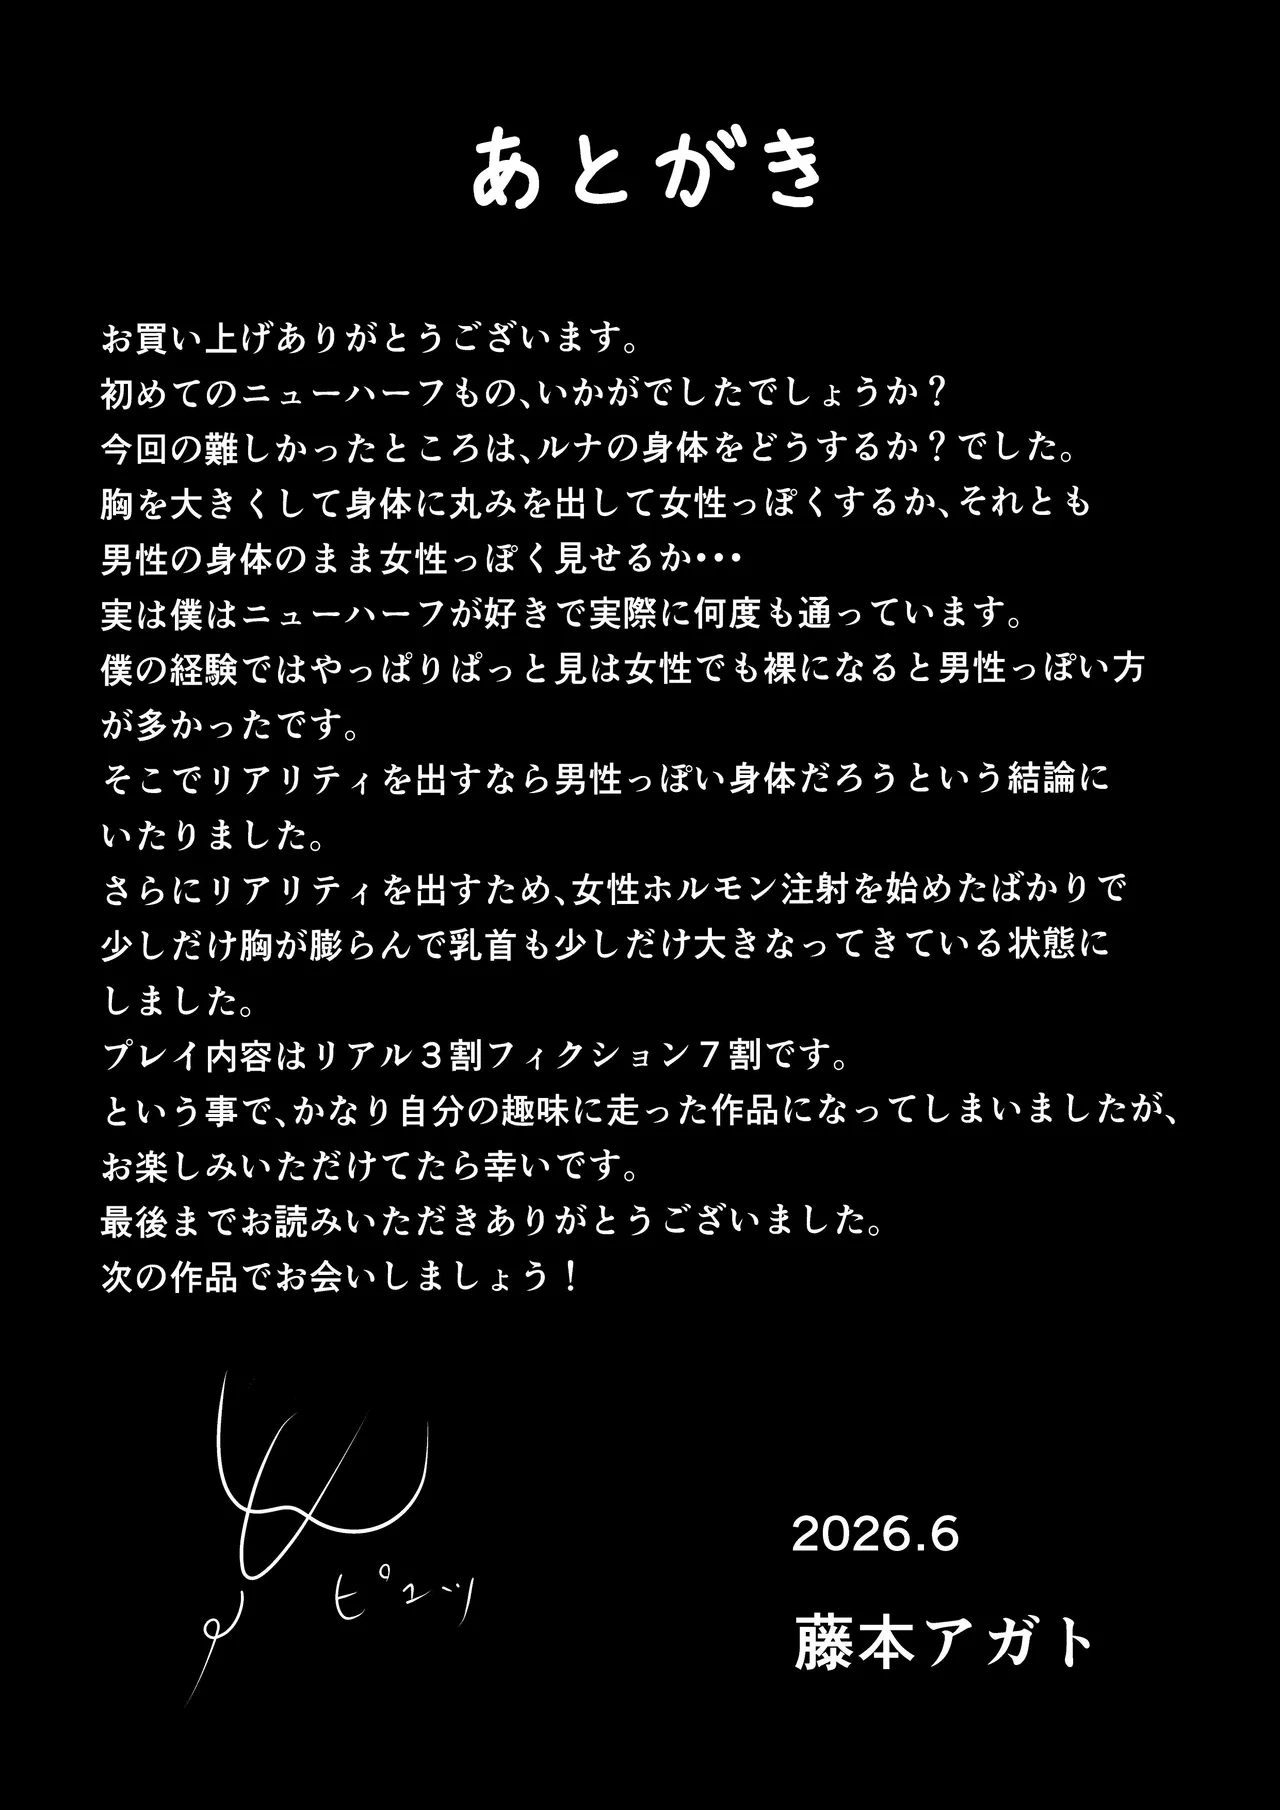 あとがき
お買い上げありがとうございます。
初めてのニューハーフもの、いかがでしたでしょうか？
今回の難しかったところは、ルナの身体をどうするか？でした。
胸を大きくして身体に丸みを出して女性っぽくするか、それとも
男性の身体のまま女性っぽく見せるか･･･
実は僕はニューハーフが好きで実際に何度も通っています。
僕の経験ではやっぱりぱっと見は女性でも裸になると男性っぽい方
が多かったです。
そこでリアリティを出すなら男性っぽい身体だろうという結論に
いたりました。
さらにリアリティを出すため、女性ホルモン注射を始めたばかりで
少しだけ胸が膨らんで乳首も少しだけ大きなってきている状態に
しました。
プレイ内容はリアル３割フィクション７割です。
という事で、かなり自分の趣味に走った作品になってしまいましたが、
お楽しみいただけてたら幸いです。
最後までお読みいただきありがとうございました。
次の作品でお会いしましょう！
ピュッ
2026.6
藤本アガト